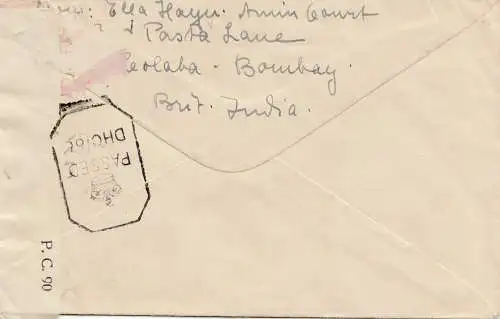 Ella Hayu: Amin Court
Pasta Lane
Colaba - Bombay.
Brit. India.
PASSED
P. C. 90